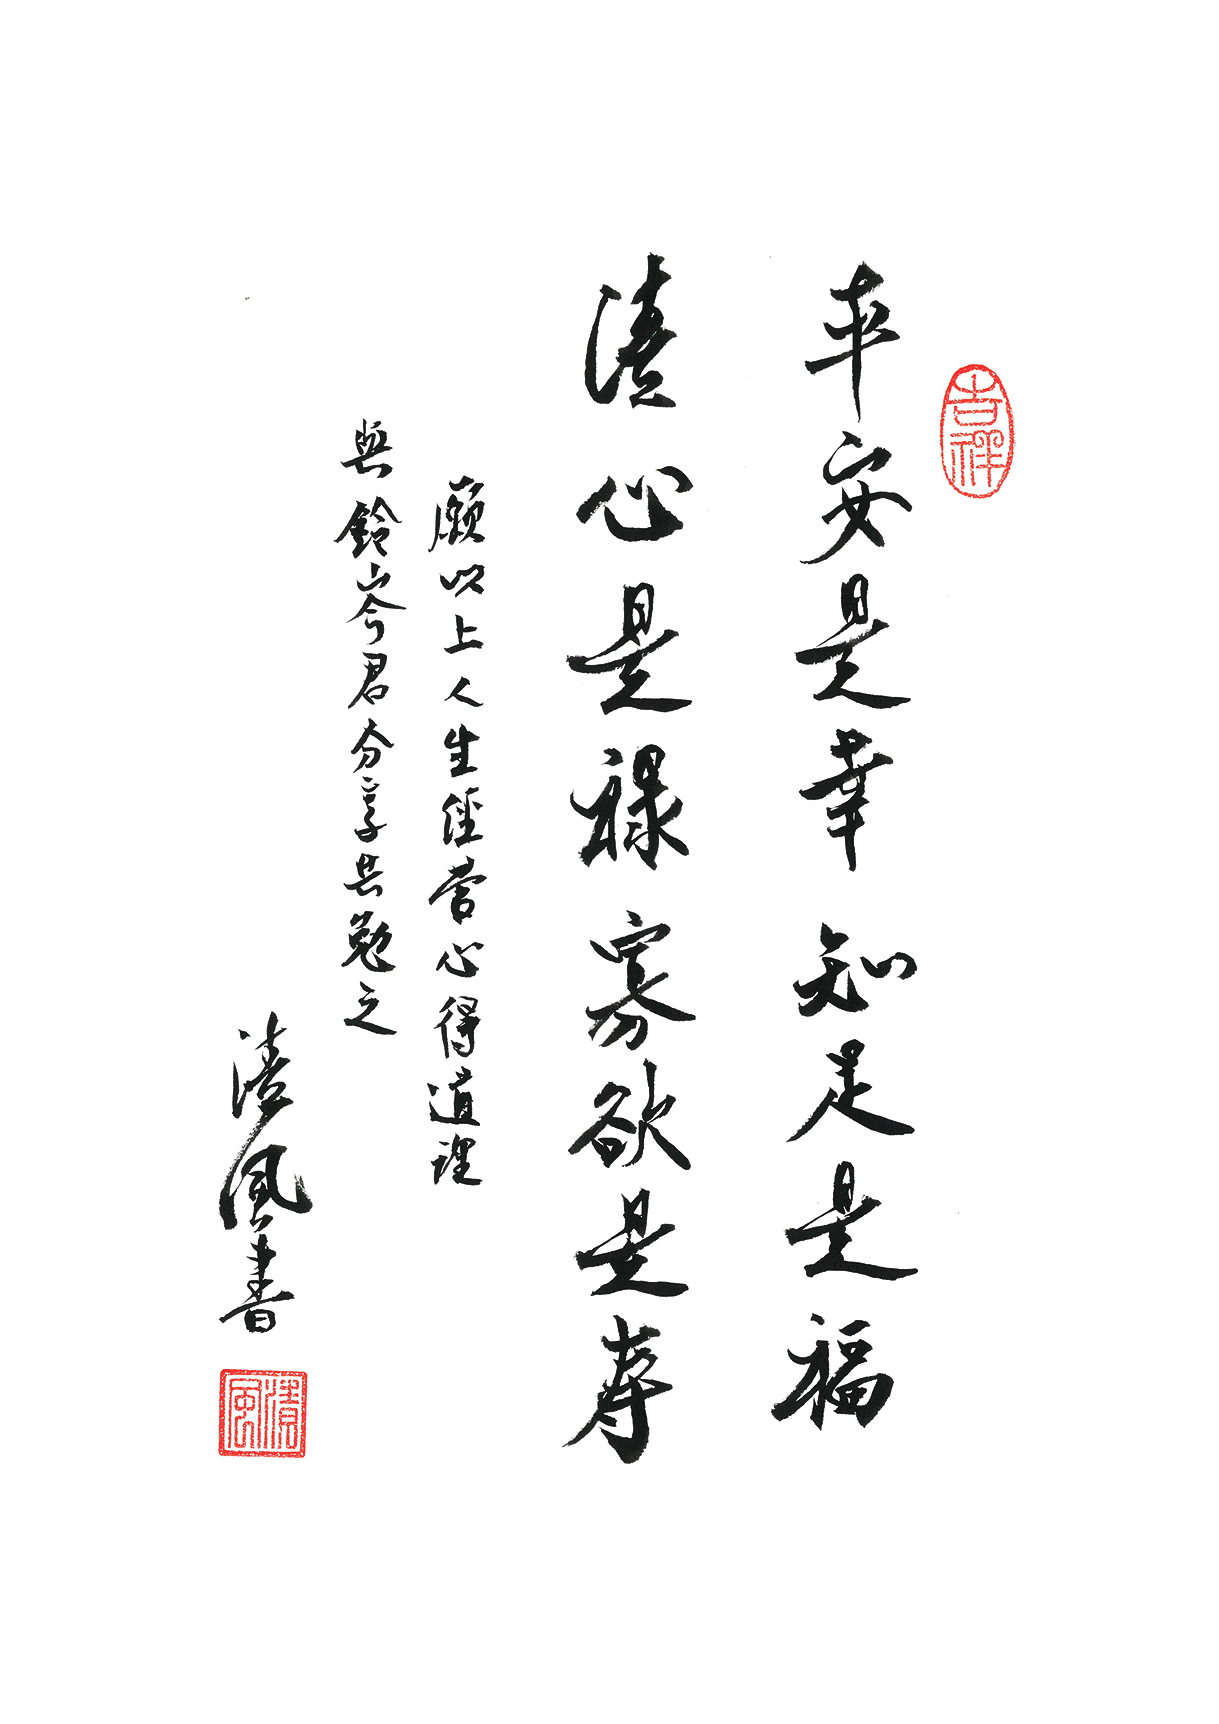 吉祥
平安是幸知足是福
清心是祿寡欲是壽
願以上人生經營心得道理
與鈴岑君分享共勉之
清風書
清風